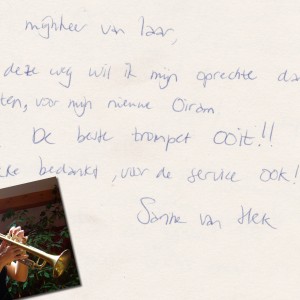 mijnheer van Laar,
deze weg wil ik mijn oprechte da
ten, voor mijn nieuwe Oiram.
De beste trompet ooit!!
ke bedankt, voor de service ook!
Sanne van Hek